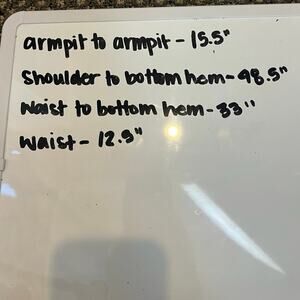 armpit to armpit - 15.5"
Shoulder to bottom hem - 48.5"
Waist to bottom hem - 33"
Waist - 12.5"